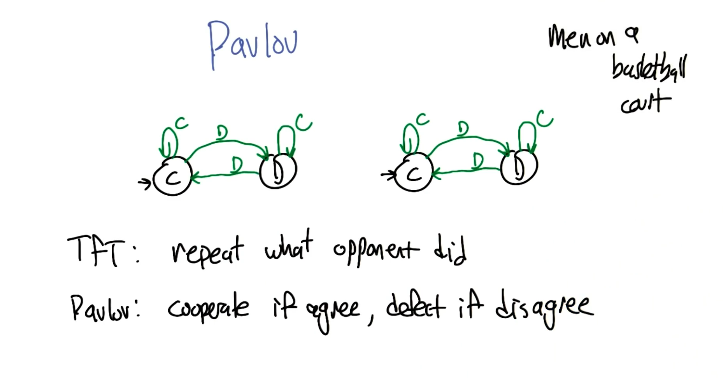 Pavlov
Men on a
basketball
court
C D C
D
C D
C D C
D
C D
TfT: repeat what opponent did
Pavlov: cooperate if agree, defect if disagree